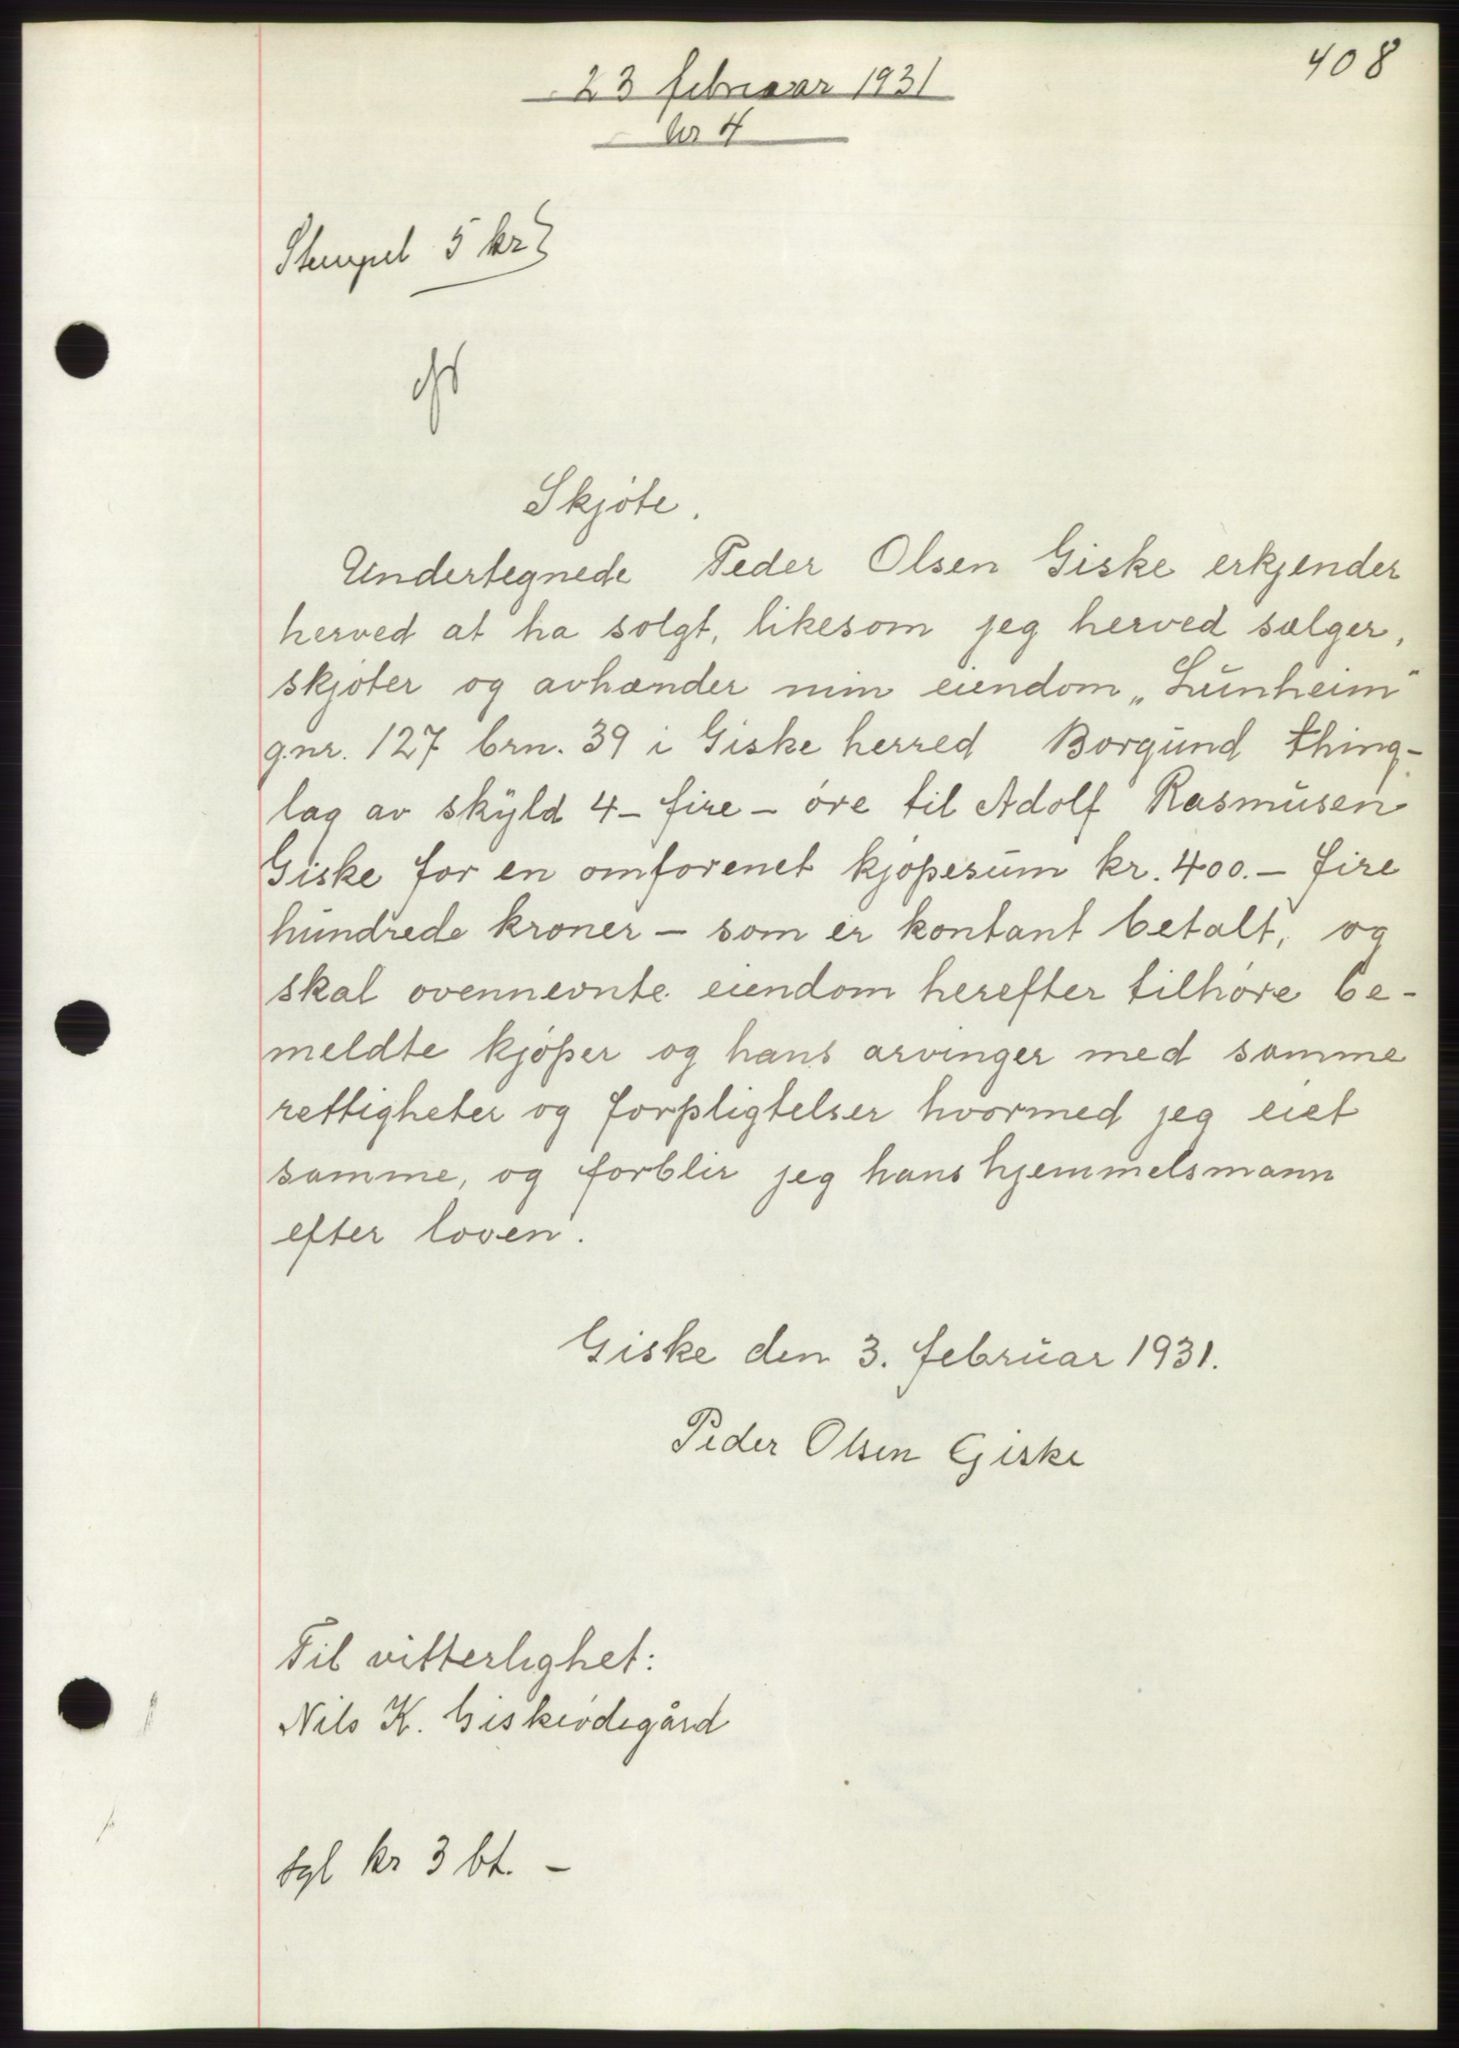 408
23 februar 1931
Nr 4
Stempel 5 kr
Skjöte.
Undertegnede Peder Olsen Giske erkjender
herved at ha solgt, likesom jeg herved sælger,
skjöter og avhænder min eiendom „Lunheim"
g.nr. 127 brn. 39 i Giske herred Borgund thing-
lag av skyld 4 - fire - öre til Adolf Rasmusen
Giske for en omforenet kjöpesum kr. 400.- fire
hundrede kroner - som er kontant betalt, og
skal ovennevnte eiendom herefter tilhöre be-
meldte kjöper og hans arvinger med samme
rettigheter og forpligtelser hvormed jeg eiet
samme, og forblir jeg hans hjemmelsmann
efter loven.
Giske den 3. februar 1931.
Peder Olsen Giske
Til vitterlighet:
Nils K. Giskeödegård
tgl kr 3 bt. -